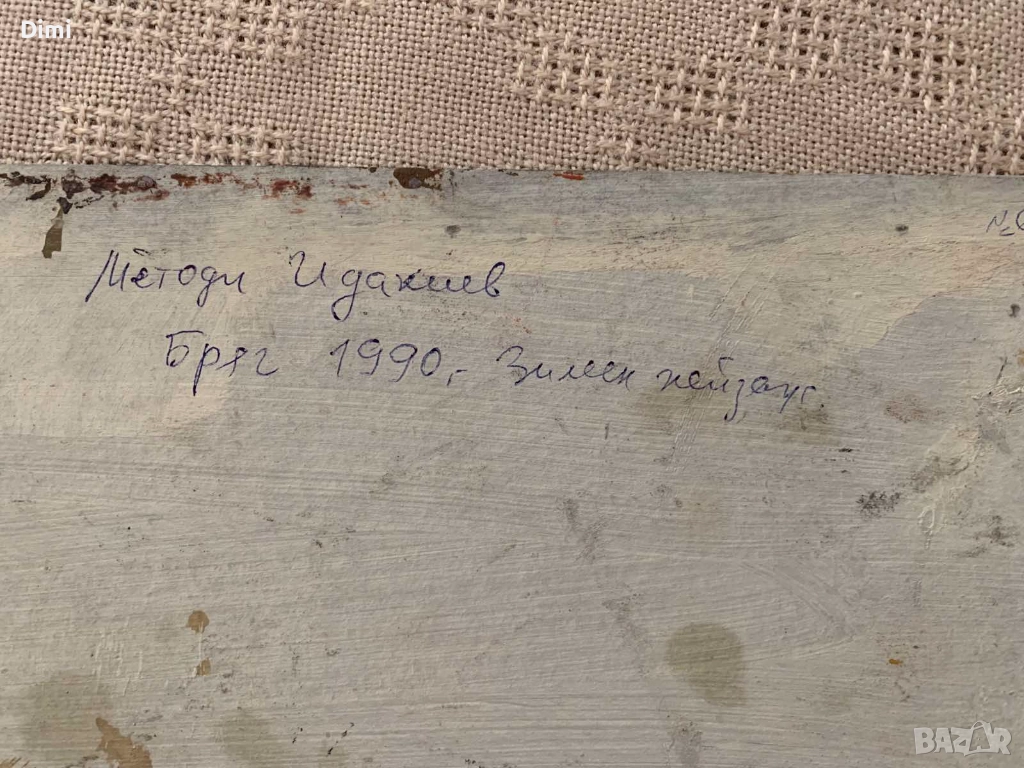 Dimi
№
Методи Идакиев
Бряг 1990,- Зимен пейзаж.
BAZAR